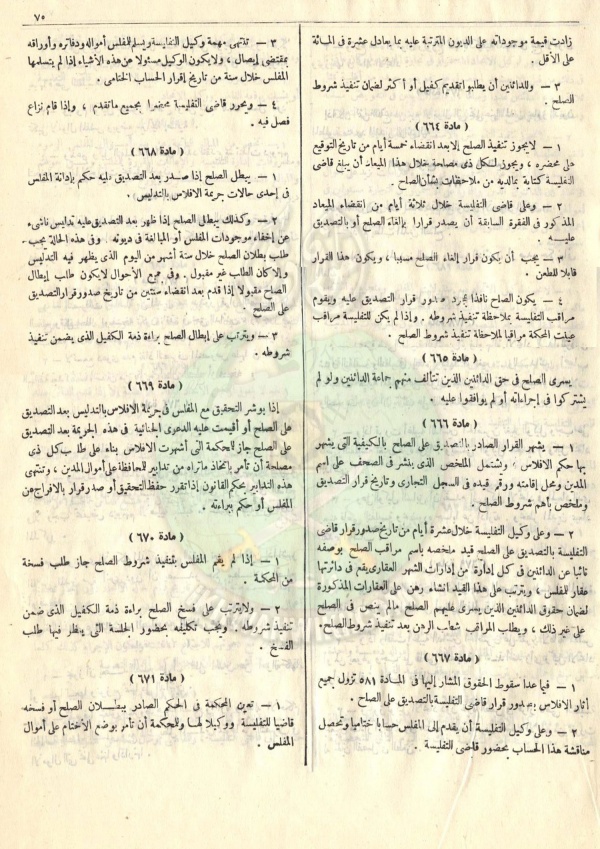 ٧٥
زادت قيمة موجوداته على الديون المترتبة عليه بما يعادل عشرة فى المائة
على الأقل .
٣ — وللدائنين أن يطلبوا تقديم كفيل أو أكثر لضمان تنفيذ شروط
الصلح .
( مادة ٦٦٤ )
١ — لايجوز تنفيذ الصلح إلا بعد انقضاء خمسة أيام من تاريخ التوقيع
على محضره ، ويجوز لكل ذى مصلحة خلال هذا الميعاد أن يبلغ قاضى
التفليسة كتابة بمالديه من ملاحظات بشأن الصلح .
٢ — وعلى قاضى التفليسة خلال ثلاثة أيام من انقضاء الميعاد
المذكور فى الفقرة السابقة أن يصدر قرارا بإلغاء الصلح أو بالتصديق
عليه .
٣ — يجب أن يكون قرار إلغاء الصلح مسببا ، ويكون هذا القرار
قابلا للطعن .
٤ — يكون الصلح نافذا بمجرد صدور قرار التصديق عليه ويقوم
مراقب التفليسة بملاحظة تنفيذ شروطه . وإذا لم يكن للتفليسة مراقب
عينت المحكمة مراقبا لملاحظة تنفيذ شروط الصلح .
( مادة ٦٦٥ )
يسرى الصلح فى حق الدائنين الذين تتألف منهم جماعة الدائنين ولو لم
يشتركوا فى إجراءاته أو لم يوافقوا عليه .
( مادة ٦٦٦ )
١ — يشهر القرار الصادر بالتصديق على الصلح بالكيفية التى يشهر
بها حكم الافلاس ، ويشتمل الملخص الذى ينشر فى الصحف على اسم
المدين ومحل إقامته ورقم قيده فى السجل التجارى وتاريخ قرار التصديق
وملخص بأهم شروط الصلح .
٢ — وعلى وكيل التفليسة خلال عشرة أيام من تاريخ صدور قرار قاضى
التفليسة بالتصديق على الصلح قيد ملخصه باسم مراقب الصلح بوصفه
نائبا عن الدائنين فى كل إدارة من إدارات الشهر العقارى يقع فى دائرتها
عقار للمفلس ، ويترتب على هذا القيد انشاء رهن على العقارات المذكورة
لضمان حقوق الدائنين الذين يسرى عليهم الصلح مالم ينص فى الصلح
على غير ذلك ، ويطلب المراقب شطب الرهن بعد تنفيذ شروط الصلح .
( مادة ٦٦٧ )
١ — فيما عدا سقوط الحقوق المشار إليها فى المادة ٥٨١ تزول جميع
آثار الافلاس بصدور قرار قاضى التفليسة بالتصديق على الصلح .
٢ — وعلى وكيل التفليسة أن يقدم إلى المفلس حسابا ختاميا وتحصل
مناقشة هذا الحساب بحضور قاضى التفليسة .
٣ — تنتهى مهمة وكيل التفليسة ويسلم للمفلس أمواله ودفاتره وأوراقه
بمقتضى إيصال ، ولايكون الوكيل مسئولا عن هذه الأشياء إذا لم يتسلمها
المفلس خلال سنة من تاريخ إقرار الحساب الختامى .
٤ — ويحرر قاضى التفليسة محضرا بجميع ماتقدم ، وإذا قام نزاع
فصل فيه .
( مادة ٦٦٨ )
١ — يبطل الصلح إذا صدر بعد التصديق عليه حكم بإدانة المفلس
فى إحدى حالات جريمة الافلاس بالتدليس .
٢ — وكذلك يبطل الصلح إذا ظهر بعد التصديق عليه تدليس ناشىء
عن إخفاء موجودات المفلس أو المبالغة فى ديونه . وفى هذه الحالة يجب
طلب بطلان الصلح خلال ستة أشهر من اليوم الذى يظهر فيه التدليس
وإلا كان الطلب غير مقبول . وفى جميع الأحوال لايكون طلب إبطال
الصلح مقبولا إذا قدم بعد انقضاء سنتين من تاريخ صدور قرار التصديق
على الصلح .
٣ — ويترتب على إبطال الصلح براءة ذمة الكفيل الذى يضمن تنفيذ
شروطه .
( مادة ٦٦٩ )
إذا بوشر التحقيق مع المفلس فى جريمة الافلاس بالتدليس بعد التصديق
على الصلح أو أقيمت عليه الدعوى الجنائية فى هذه الجريمة بعد التصديق
على الصلح جاز للمحكمة التى أشهرت الافلاس بناء على طلب كل ذى
مصلحة أن تأمر باتخاذ ماتراه من تدابير للمحافظة على أموال المدين ، وتنتهى
هذه التدابير بحكم القانون إذا تقرر حفظ التحقيق أو صدر قرار بالافراج عن
المفلس أو حكم ببراءته .
( مادة ٦٧٠ )
١ — إذا لم يقم المفلس بتنفيذ شروط الصلح جاز طلب فسخه
من المحكمة .
٢ — ولايترتب على فسخ الصلح براءة ذمة الكفيل الذى ضمن
تنفيذ شروطه . ويجب تكليفه بحضور الجلسة التى ينظر فيها طلب
الفسخ .
( مادة ٦٧١ )
١ — تعين المحكمة فى الحكم الصادر ببطلان الصلح أو فسخه
قاضيا للتفليسة ووكيلا لها وللمحكمة أن تأمر بوضع الأختام على أموال
المفلس .